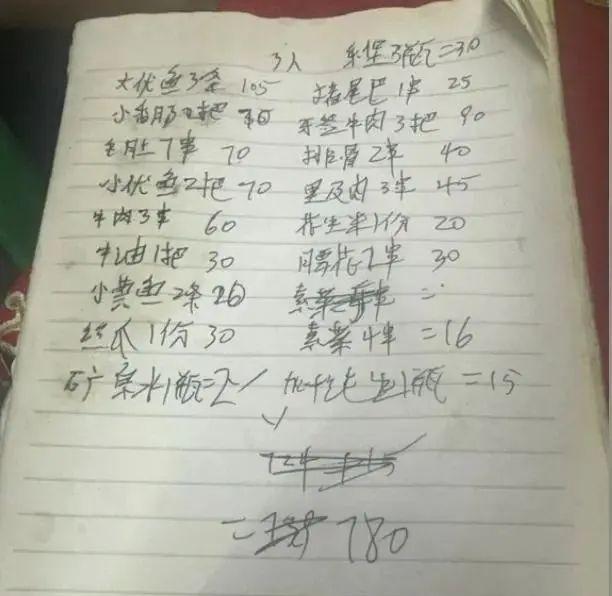 3人 乐堡3瓶=30
大优鱼3条 105 猪尾巴1串 25
小香肠2把 牙签牛肉3把 90
毛肚7串 70 排骨2串 40
小优鱼2把 70 里及肉3串 45
牛肉3串 60 花生米1份 20
牛油1把 30 腰花2串 30
小黄鱼2条 素菜 =
丝瓜1份 30 素菜4串 =16
矿泉水1瓶=2 1瓶 =15
= 780